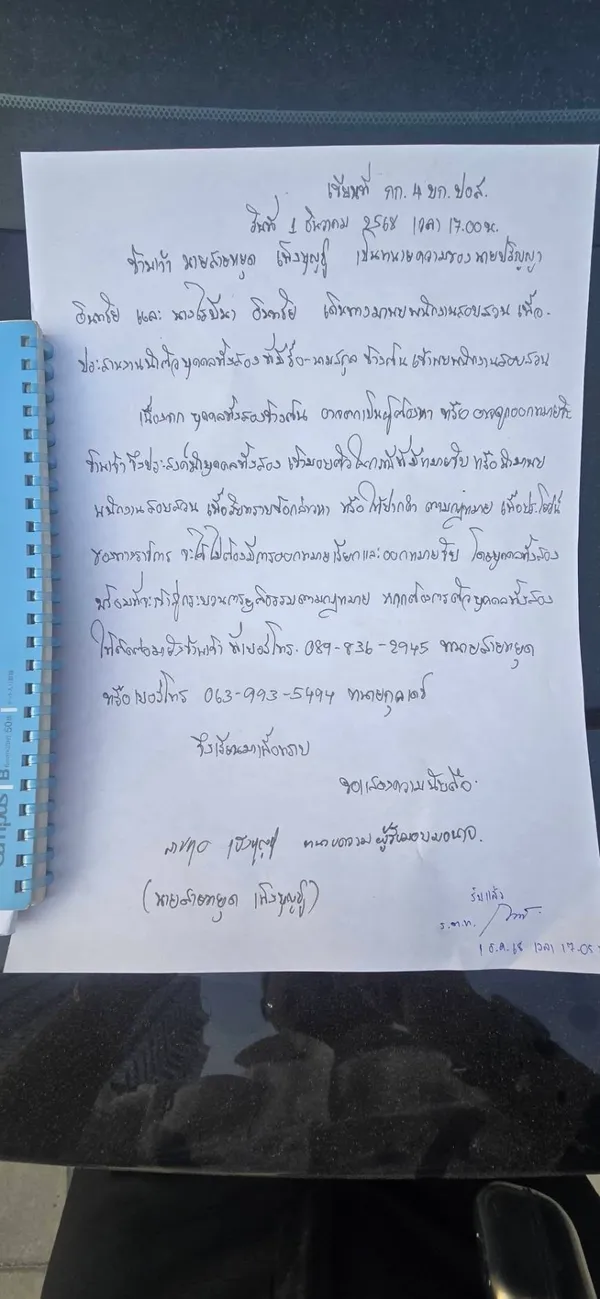 เขียนที่ กก. 4 บก. ปอศ.
วันที่ 1 ธันวาคม 2568 เวลา 17.00 น.
ข้าพเจ้า นายสายหยุด เพ็งบุญชู เป็นทนายความของ นายปริญญา
อินทรีย์ และ นาง อินทรีย์ เดินทางมาพบพนักงานสอบสวน เพื่อ
ประสานงานนำตัวบุคคลทั้งสอง ที่มีชื่อ-นามสกุล ข้างต้น เข้าพบพนักงานสอบสวน
เนื่องจาก บุคคลทั้งสองข้างต้น อาจตกเป็นผู้ต้องหา หรือ อาจถูกออกหมายจับ
ข้าพเจ้า จึงประสงค์นำบุคคลทั้งสอง เข้ามอบตัวในกรณีที่มีหมายจับ หรือ นำมาพบ
พนักงานสอบสวน เพื่อรับทราบข้อกล่าวหา หรือ ให้ปากคำ ตามกฎหมาย เพื่อประโยชน์
ของทางราชการ จะได้ไม่ต้องมีการออกหมายเรียกและออกหมายจับ โดยบุคคลทั้งสอง
พร้อมที่จะเข้าสู่กระบวนการยุติธรรมตามกฎหมาย หากต้องการตัวบุคคลทั้งสอง
ให้ติดต่อมายังข้าพเจ้า ที่เบอร์โทร. 089-836-2945 ทนายสายหยุด
หรือ เบอร์โทร 063-993-5494 ทนายกุลเดช
จึงเรียนมาเพื่อทราบ
ขอแสดงความนับถือ
เพ็งบุญชู ทนายความ ผู้รับมอบอำนาจ.
(นายสายหยุด เพ็งบุญชู)
รับแล้ว
ร.ต.ท.
1 ธ.ค. 68 เวลา 17.05
Campus B